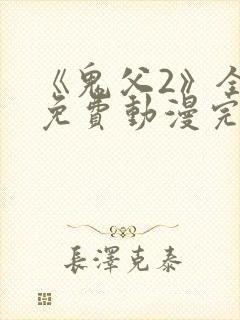 《鬼父2》全
免費動漫完
長澤克泰